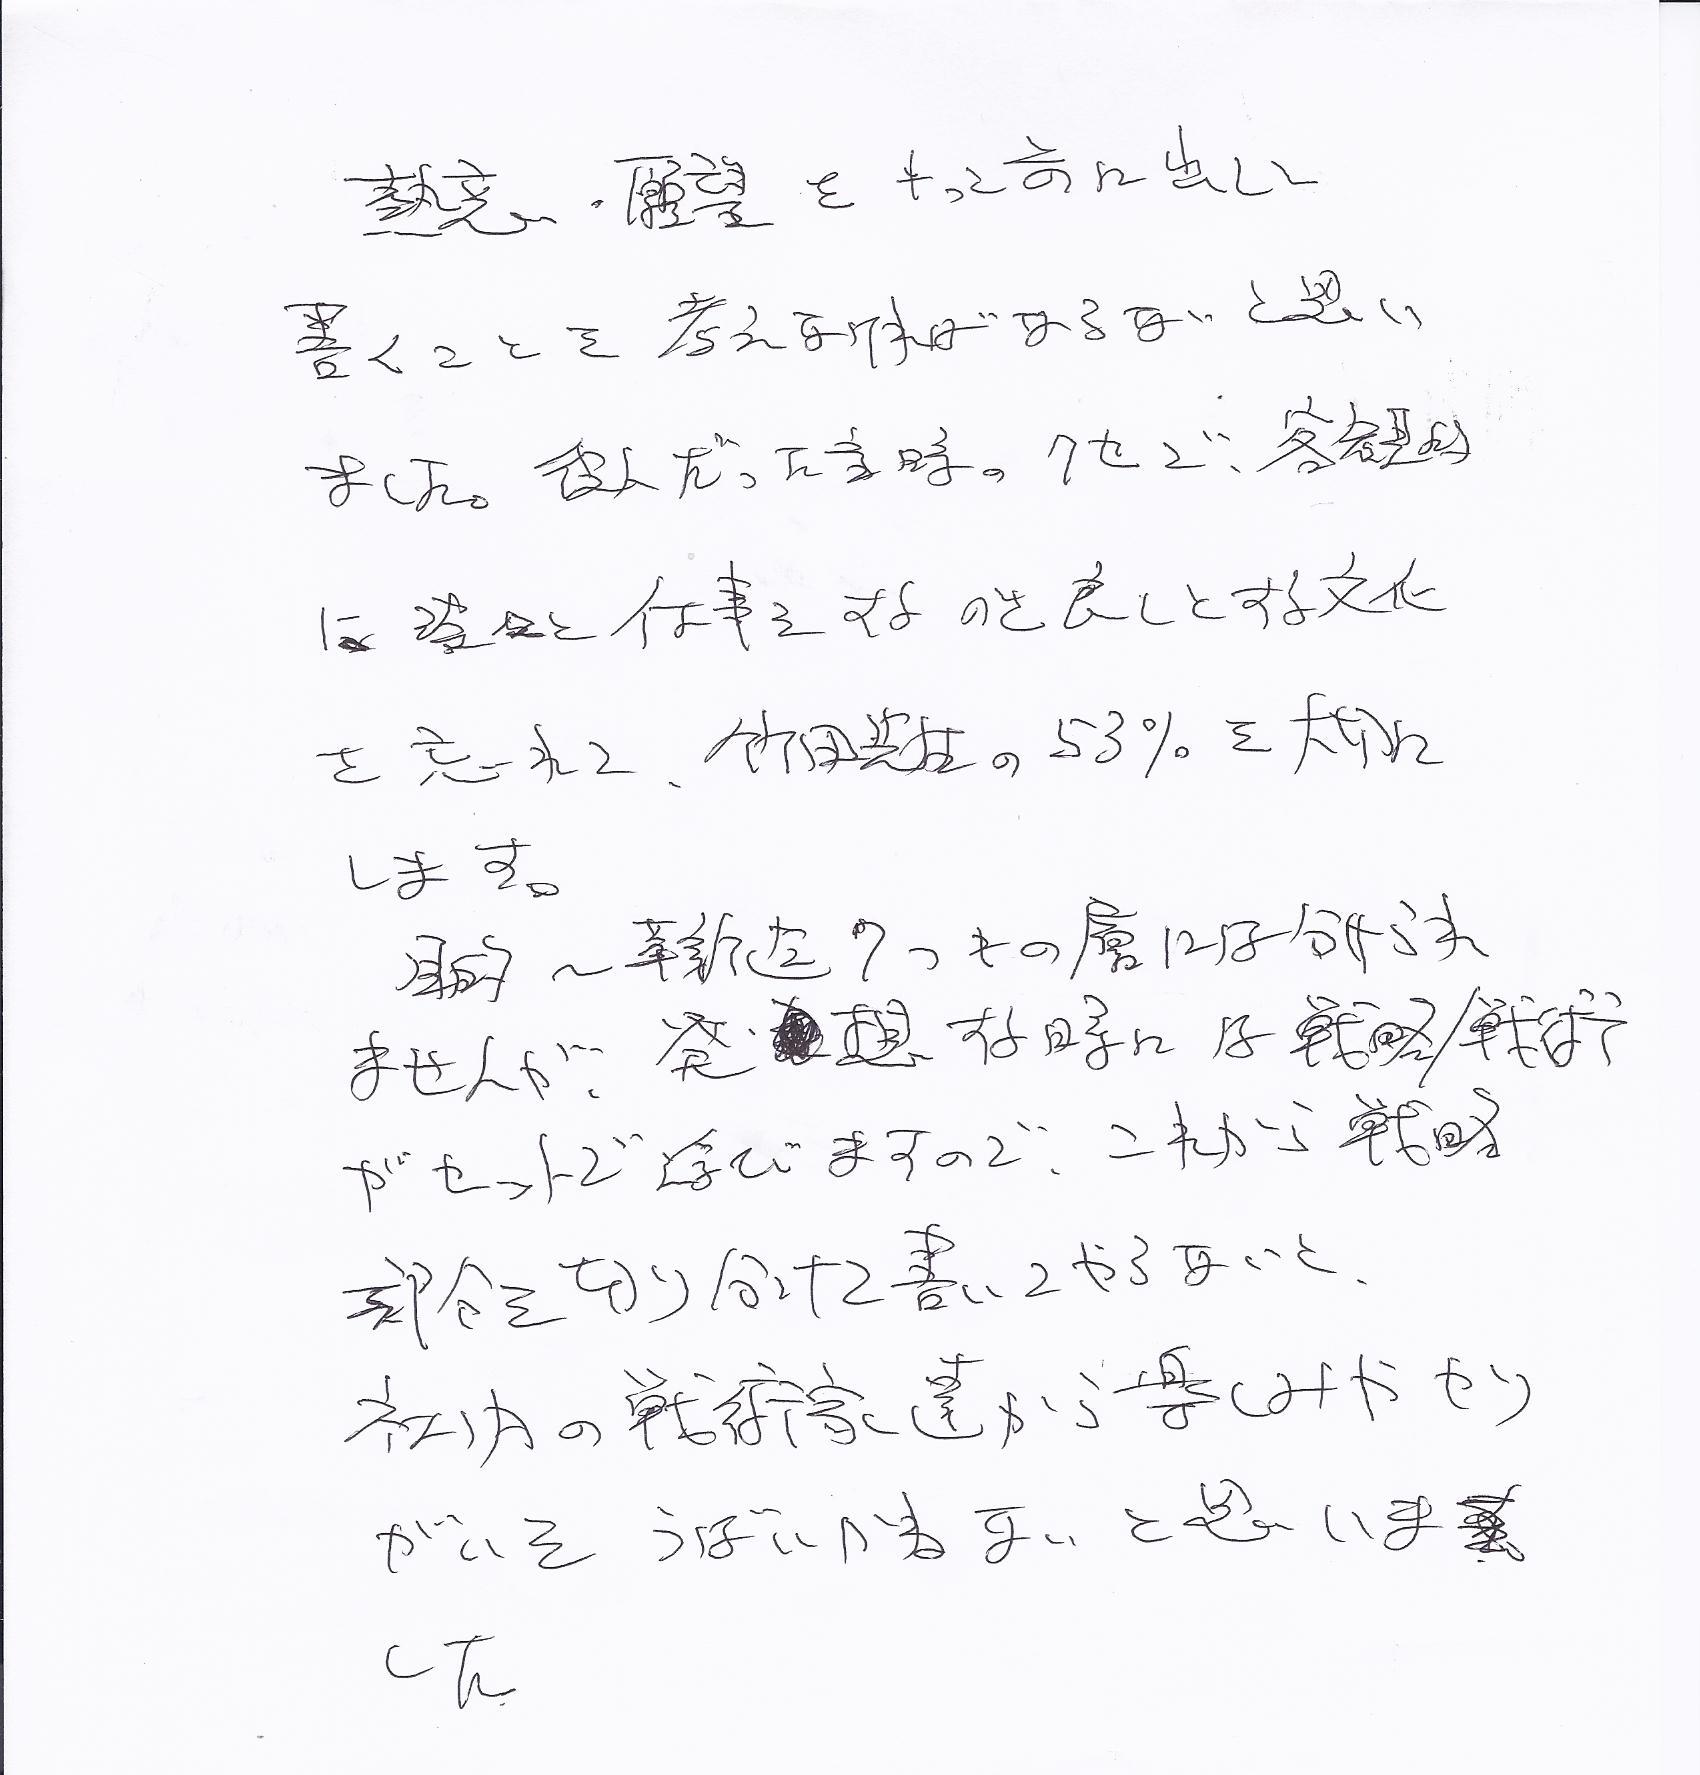 熱意・願望をもっと前に出して
書くことを考えなければならないと思い
ました。役人だった時のクセで、客観的
に淡々と仕事をするのを良しとする文化
を忘れて、竹田先生の53%を大切に
します。
目的〜革新迄7つもの層には分けられ
ませんが、発想する時には戦略/戦術
がセットで浮びますので、これから戦略
部分を切り分けて書いてやらないと、
社内の戦術家達から楽しみややり
がいをうばいかねないと思いま
した